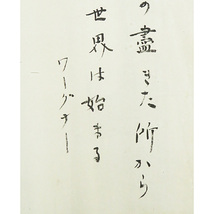 の盡きた所から
世界は始まる
ワーグナー